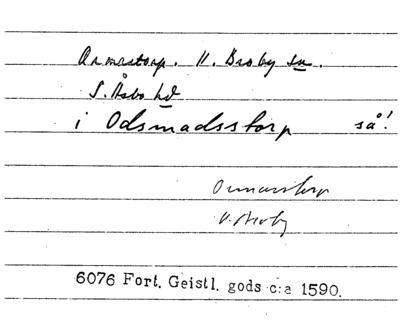 Ormastorp. V. Broby sn.
S. Åsbo hd
i Odsmadsstorp så!
Ormastorp
V. Broby
6076 Fort. Geistl. gods c:a 1590.